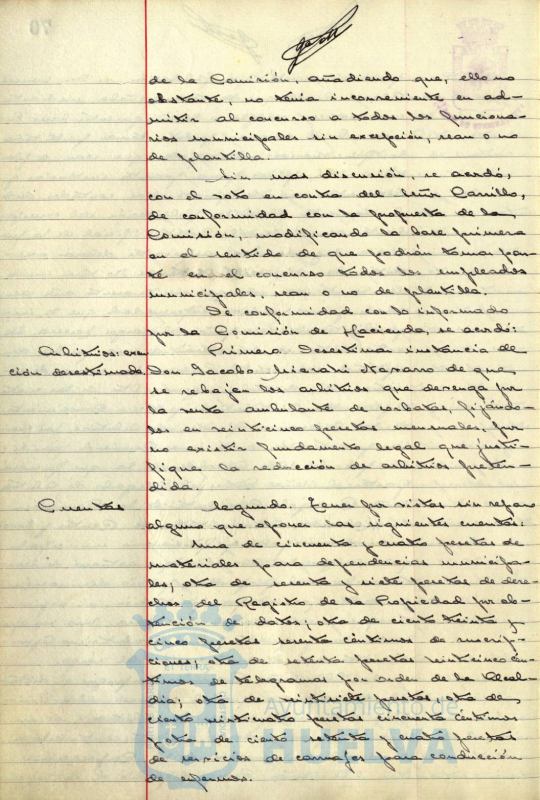 de la Comisión, añadiendo que, ello no
obstante, no tenía inconveniente en ad-
mitir al concurso a todos los funciona-
rios municipales sin excepción, sean o no
de plantilla.
Sin mas discusión, se acordó,
con el voto en contra del Señor Carrillo,
de conformidad con la propuesta de la
Comisión, modificando la base primera
en el sentido de que podrán tomar par-
te en el concurso todos los empleados
municipales, sean o no de plantilla.
De conformidad con lo informado
por la Comisión de Hacienda, se acordó:
Arbitrios: exen-
ción desestimada.
Primero. Desestimar instancia de
Don Jacobo Navarro de que
se rebajen los arbitrios que devenga por
la venta ambulante de corbatas, fijándo-
los en veinticinco pesetas mensuales, por
no existir fundamento legal que justi-
fique la reducción de arbitrios preten-
dida.
Cuentas
Segundo. Tener por vistas sin reparo
alguno que oponer las siguientes cuentas:
Una de cincuenta y cuatro pesetas de
materiales para dependencias municipa-
les; otra de sesenta y siete pesetas de dere-
chos del Registro de la Propiedad por ob-
tención de datos; otra de ciento treinta y
cinco pesetas sesenta céntimos de suscrip-
ciones; otra de setenta pesetas veinticinco cén-
timos de telegramas por orden de la Alcal-
día; otra de veintisiete pesetas; otra de
ciento veinticuatro pesetas cincuenta céntimos
y otra de ciento setenta y cuatro pesetas
de servicios de carruajes para conducción
de enfermos.
Ayuntamiento de
HUELVA